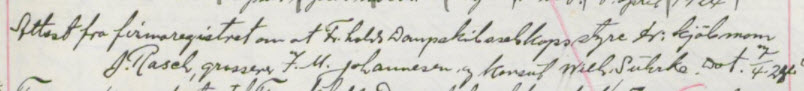 Attest fra firmaregistret om at Fr.halds Dampskibsselskaps styre er: kjöbmann
J. Rasch, grosserer F. M. Johannesen og konsul Wilh. Suhrke. Dat. 7/4 24